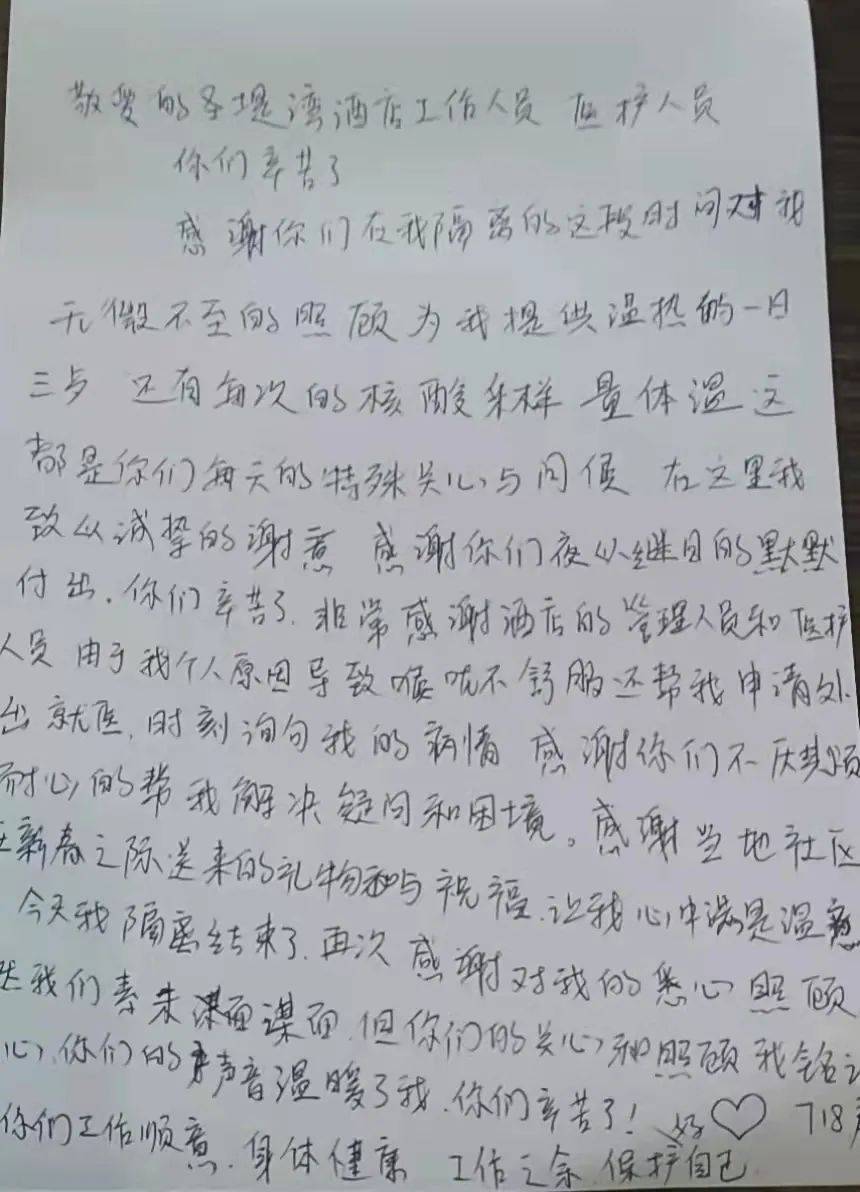 敬爱的圣堤湾酒店工作人员 医护人员
你们辛苦了
感谢你们在我隔离的这段时间对我
无微不至的照顾为我提供温热的一日
三歺 还有每次的核酸采样 量体温这
都是你们每天的特殊关心与问候 在这里我
致以诚挚的谢意 感谢你们夜以继日的默默
付出.你们辛苦了.非常感谢酒店的管理人员和医护
人员 由于我个人原因导致喉咙不舒服还帮我申请外
出就医,时刻询问我的病情 感谢你们不厌其烦
耐心的帮我解决疑问和困境。感谢当地社区
在新春之际送来的礼物和与祝福.让我心中满是温意
今天我隔离结束了.再次感谢对我的悉心照顾
我们素未谋面.但你们的关心和照顾我铭记
心.你们的声音温暖了我.你们辛苦了!
你们工作顺意.身体健康 工作之余.保护自己
好♡ 718